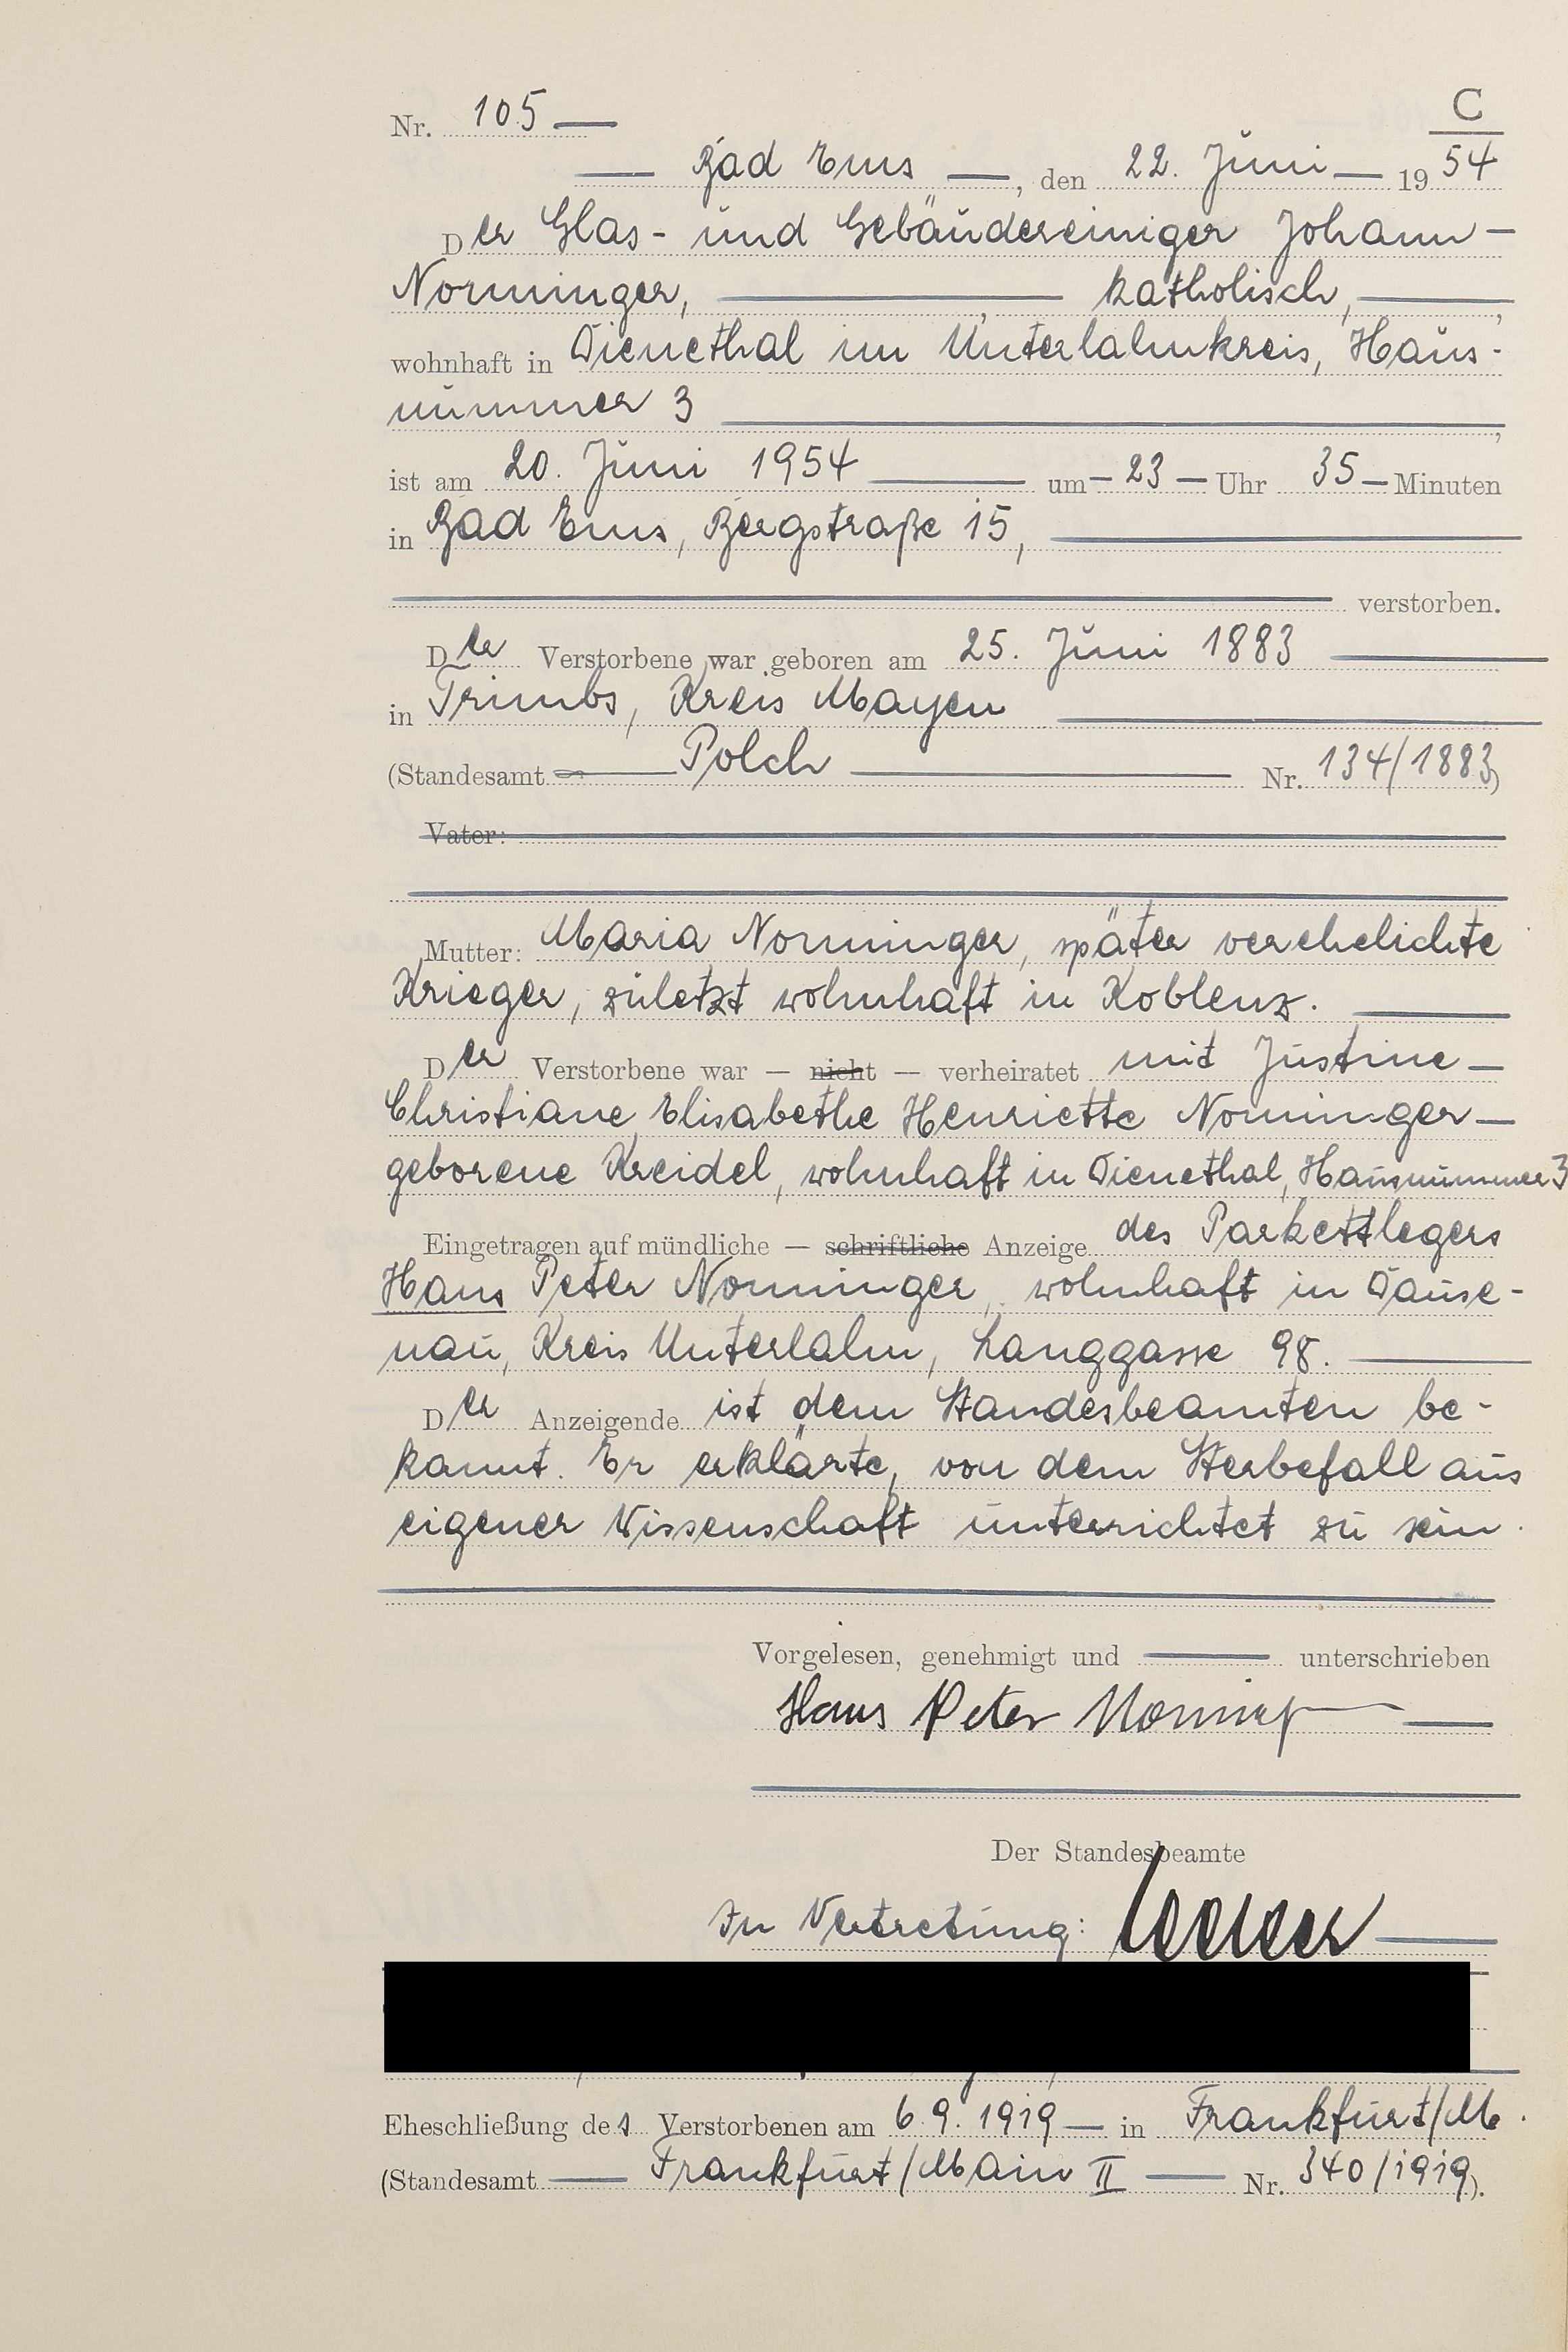 Nr. 105 —
C
— Bad Ems —, den 22. Juni — 19 54
Der Glas- und Gebäudereiniger Johann —
Norminger, — katholisch, —,
wohnhaft in Dienethal im Unterlahnkreis, Haus-
nummer 3 —,
ist am 20. Juni 1954 — um — 23 — Uhr 35 — Minuten
in Bad Ems, Bergstraße 15, —
— verstorben.
Der Verstorbene war geboren am 25. Juni 1883 —
in Trimbs, Kreis Mayen —
(Standesamt — Polch — Nr. 134/1883)
Vater: —
Mutter: Maria Norminger, später verehelichte
Krieger, zuletzt wohnhaft in Koblenz. —
Der Verstorbene war — nicht — verheiratet mit Justine —
Christiane Elisabethe Henriette Norminger —
geborene Kreidel, wohnhaft in Dienethal, Hausnummer 3
Eingetragen auf mündliche — schriftliche Anzeige des Parkettlegers
Hans Peter Norminger, wohnhaft in Dause-
nau, Kreis Unterlahn, Langgasse 98. —
Der Anzeigende ist dem Standesbeamten be-
kannt. Er erklärte, von dem Sterbefall aus
eigener Wissenschaft unterrichtet zu sein.
Vorgelesen, genehmigt und — unterschrieben
Hans Peter Norminger —
Der Standesbeamte
In Vertretung:
Eheschließung des Verstorbenen am 6.9.1919 — in Frankfurt/M.
(Standesamt — Frankfurt/Main II — Nr. 340/1919).